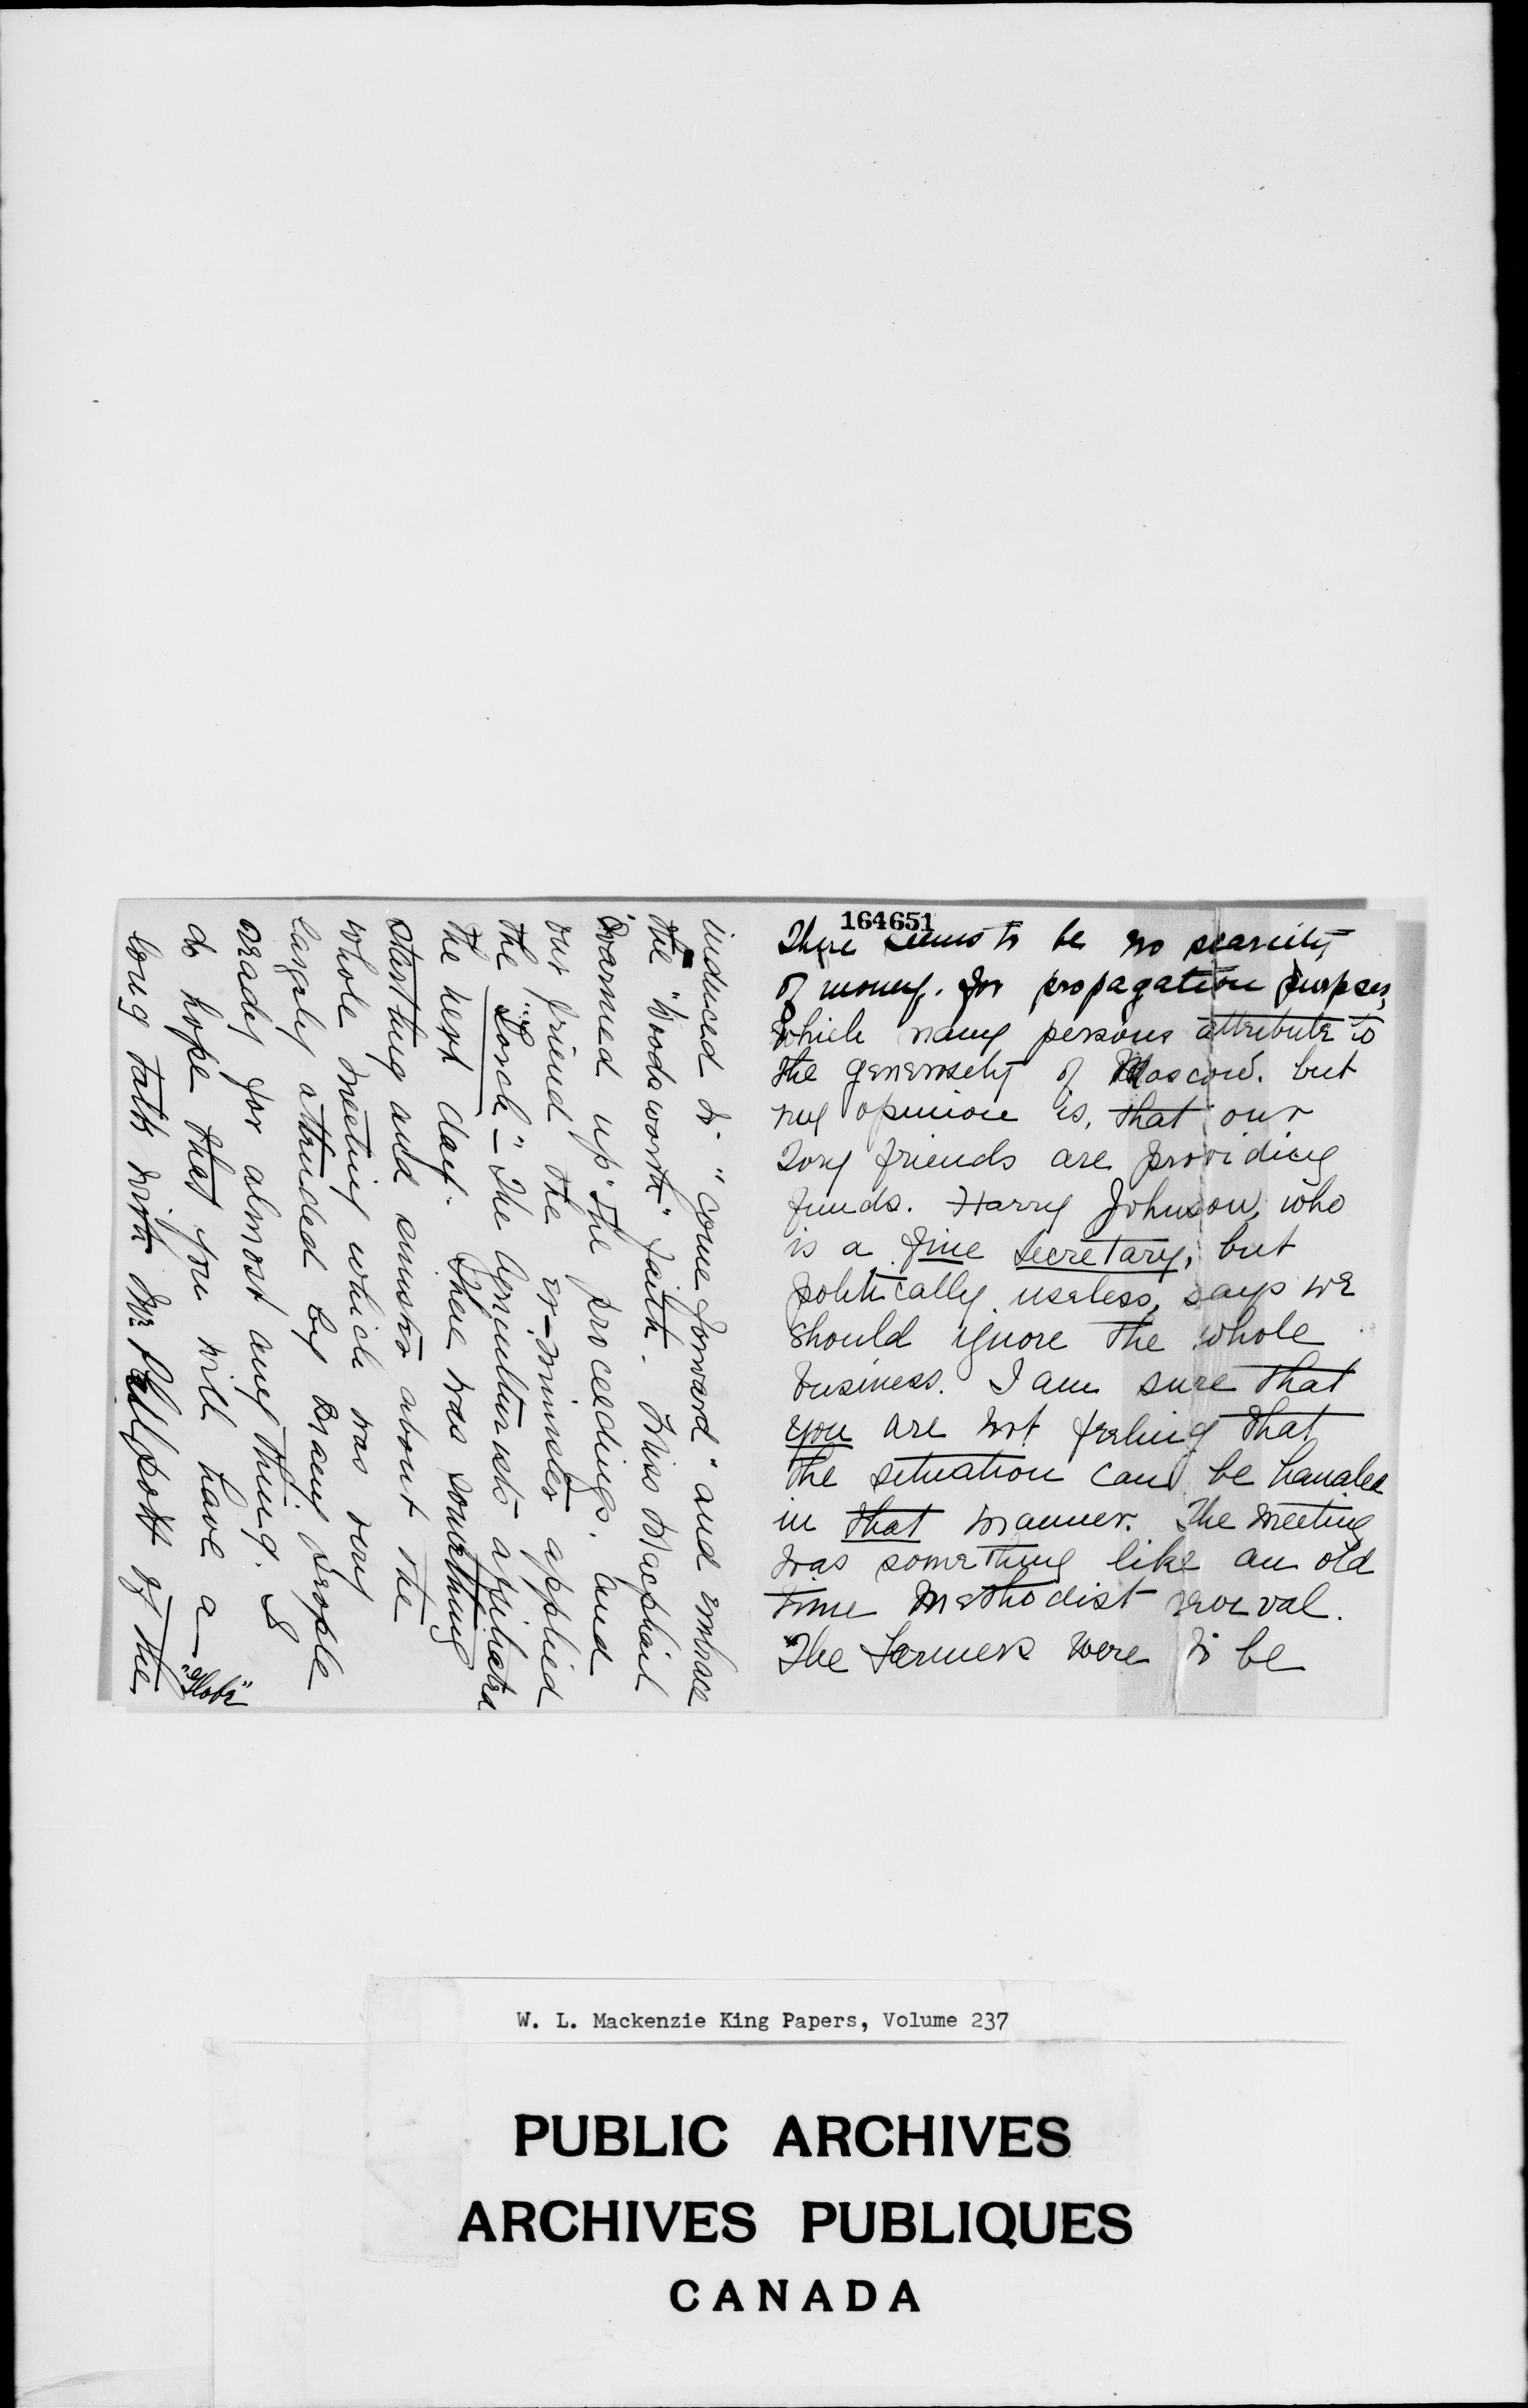 164651
There seems to be no scarcity
of money. for propagation purposes,
which many persons attribute to
the generosity of Moscow. but
my opinion is, that our
Tory friends are providing
funds. Harry Johnson, who
is a fine secretary, but
politically useless, says we
should ignore the whole
business. I am sure that
you are not feeling that
the situation can be handled
in that manner. The meeting
was something like an old
time Methodist revival.
The Farmers were to be
induced to "come forward" and embrace
the "Woodsworth" faith. Miss Macphail
"warmed up" the proceedings. and
our friend the ex-minister applied
the "Torch" - The Agriculturists affiliated
the next day. There was something
startling and sinister about the
whole meeting which was very
largely attended by many people
ready for almost any thing. I
do hope that you will have a
long talk with Mr. of the
"Globe"
W. L. Mackenzie King Papers, Volume 237
PUBLIC ARCHIVES
ARCHIVES PUBLIQUES
CANADA